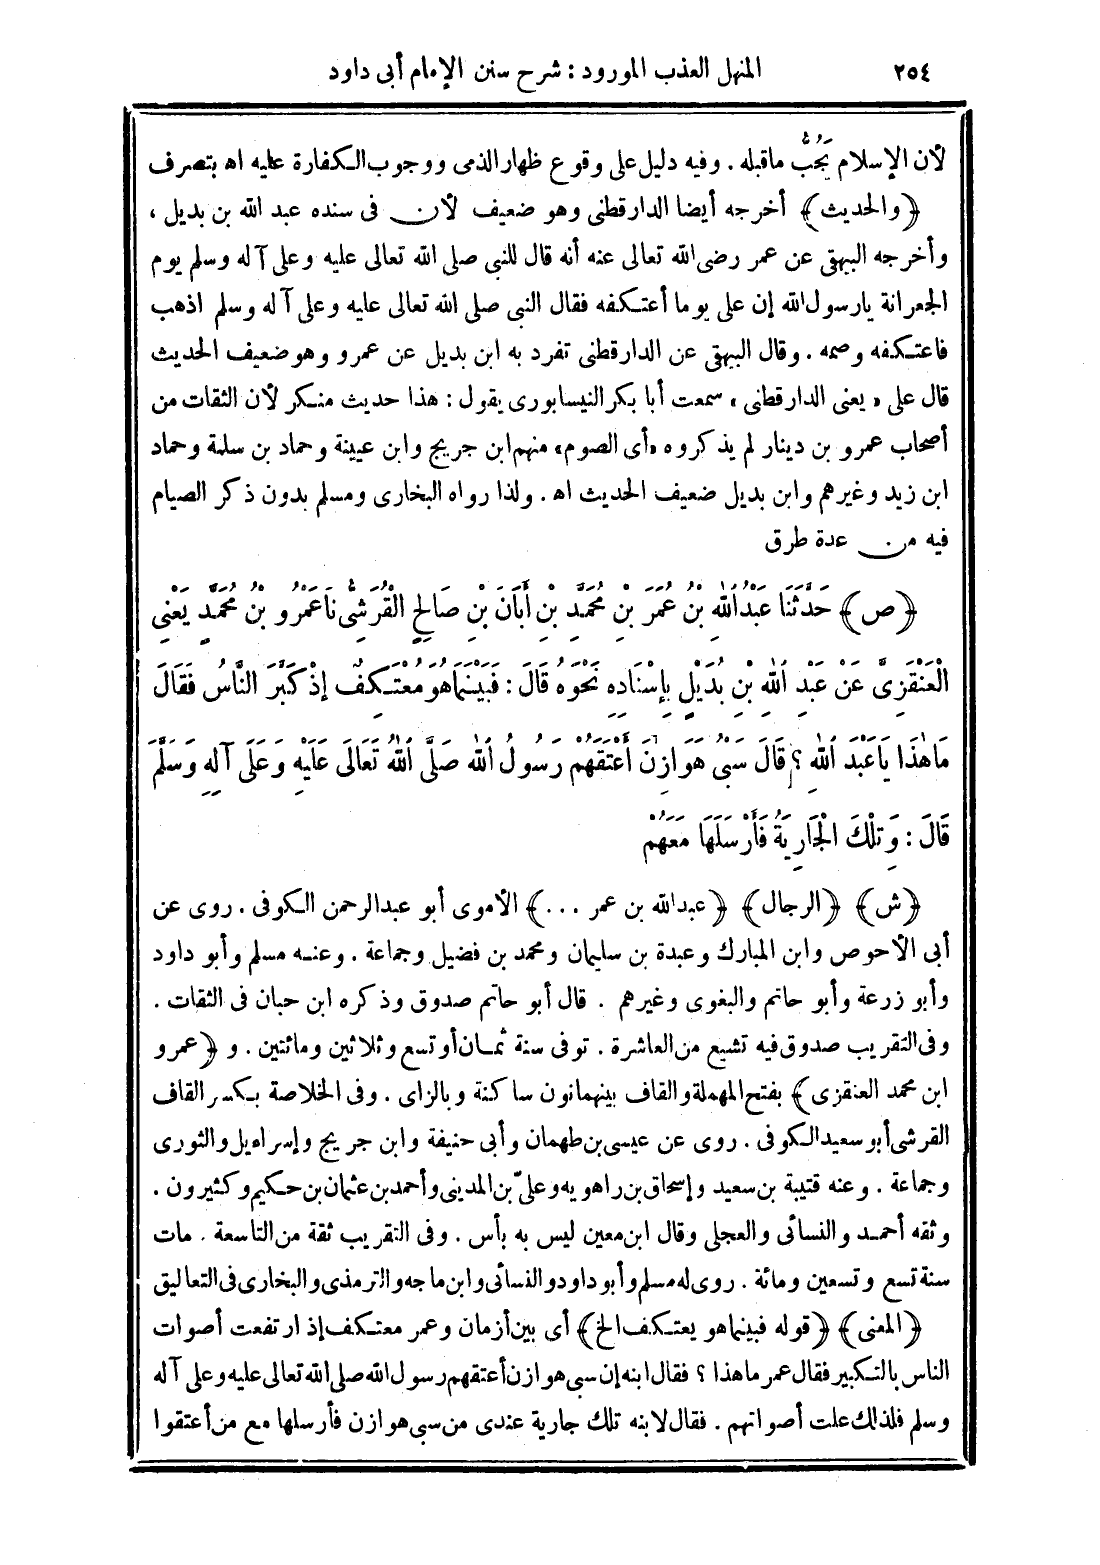 ٢٥٤ المنهل العذب المورود : شرح سنن الإمام أبى داود
لأن الإسلام يَجُبُّ ماقبله . وفيه دليل على وقوع ظهار الذمى ووجوب الكفارة عليه اه بتصرف
﴿والحديث﴾ أخرجه أيضا الدارقطنى وهو ضعيف لأن فى سنده عبد الله بن بديل ،
وأخرجه البيهقى عن عمر رضى الله تعالى عنه أنه قال للنبى صلى الله تعالى عليه وعلى آله وسلم يوم
الجعرانة يارسول الله إن على يوما أعتكفه فقال النبى صلى الله تعالى عليه وعلى آله وسلم اذهب
فاعتكفه وصمه . وقال البيهقى عن الدارقطنى تفرد به ابن بديل عن عمرو وهو ضعيف الحديث
قال على « يعنى الدارقطنى » سمعت أبا بكر النيسابورى يقول : هذا حديث منكر لأن الثقات من
أصحاب عمرو بن دينار لم يذكروه «أى الصوم» منهم ابن جريج وابن عيينة وحماد بن سلمة وحماد
ابن زيد وغيرهم وابن بديل ضعيف الحديث اه . ولذا رواه البخارى ومسلم بدون ذكر الصيام
فيه من عدة طرق
﴿ص﴾ حَدَّثَنَا عَبْدُ اللهِ بْنُ عُمَرَ بْنِ مُحَمَّدِ بْنِ أَبَانَ بْنِ صَالِحٍ الْقُرَشِىُّ نَا عَمْرُو بْنُ مُحَمَّدٍ يَعْنِى
الْعَنْقَزِىَّ عَنْ عَبْدِ اللهِ بْنِ بُدَيْلٍ بِإِسْنَادِهِ نَحْوَهُ قَالَ : فَبَيْنَمَا هُوَ مُعْتَكِفٌ إِذْ كَبَّرَ النَّاسُ فَقَالَ
مَاهٰذَا يَاعَبْدَ اللهِ ؟ قَالَ سَبْىُ هَوَازِنَ أَعْتَقَهُمْ رَسُولُ اللهِ صَلَّى اللهُ تَعَالَى عَلَيْهِ وَعَلَى آلِهِ وَسَلَّمَ
قَالَ : وَتِلْكَ الْجَارِيَةُ فَأَرْسَلَهَا مَعَهُمْ
﴿ش﴾ ﴿الرجال﴾ ﴿عبدالله بن عمر ...﴾ الأموى أبو عبدالرحمن الكوفى . روى عن
أبى الأحوص وابن المبارك وعبدة بن سليمان ومحمد بن فضيل وجماعة . وعنه مسلم وأبو داود
وأبو زرعة وأبو حاتم والبغوى وغيرهم . قال أبو حاتم صدوق وذكره ابن حبان فى الثقات .
وفى التقريب صدوق فيه تشيع من العاشرة . توفى سنة ثمان أو تسع وثلاثين ومائتين . و ﴿عمرو
ابن محمد العنقزى﴾ بفتح المهملة والقاف بينهما نون ساكنة وبالزاى . وفى الخلاصة بكسر القاف
القرشى أبو سعيد الكوفى . روى عن عيسى بن طهمان وأبى حنيفة وابن جريج وإسراءيل والثورى
وجماعة . وعنه قتيبة بن سعيد وإسحاق بن راهويه وعلىّ بن المدينى وأحمد بن عثمان بن حكيم وكثيرون .
وثقه أحمد والنسائى والعجلى وقال ابن معين ليس به بأس . وفى التقريب ثقة من التاسعة . مات
سنة تسع وتسعين ومائة . روى له مسلم وأبو داود والنسائى وابن ماجه والترمذى والبخارى فى التعاليق
﴿المعنى﴾ ﴿قوله فبينما هو يعتكف الخ﴾ أى بين أزمان وعمر معتكف إذ ارتفعت أصوات
الناس بالتكبير فقال عمر ماهذا ؟ فقال ابنه إن سبى هوازن أعتقهم رسول الله صلى الله تعالى عليه وعلى آله
وسلم فلذلك علت أصواتهم . فقال لابنه تلك جارية عندى من سبى هوازن فأرسلها مع من أعتقوا